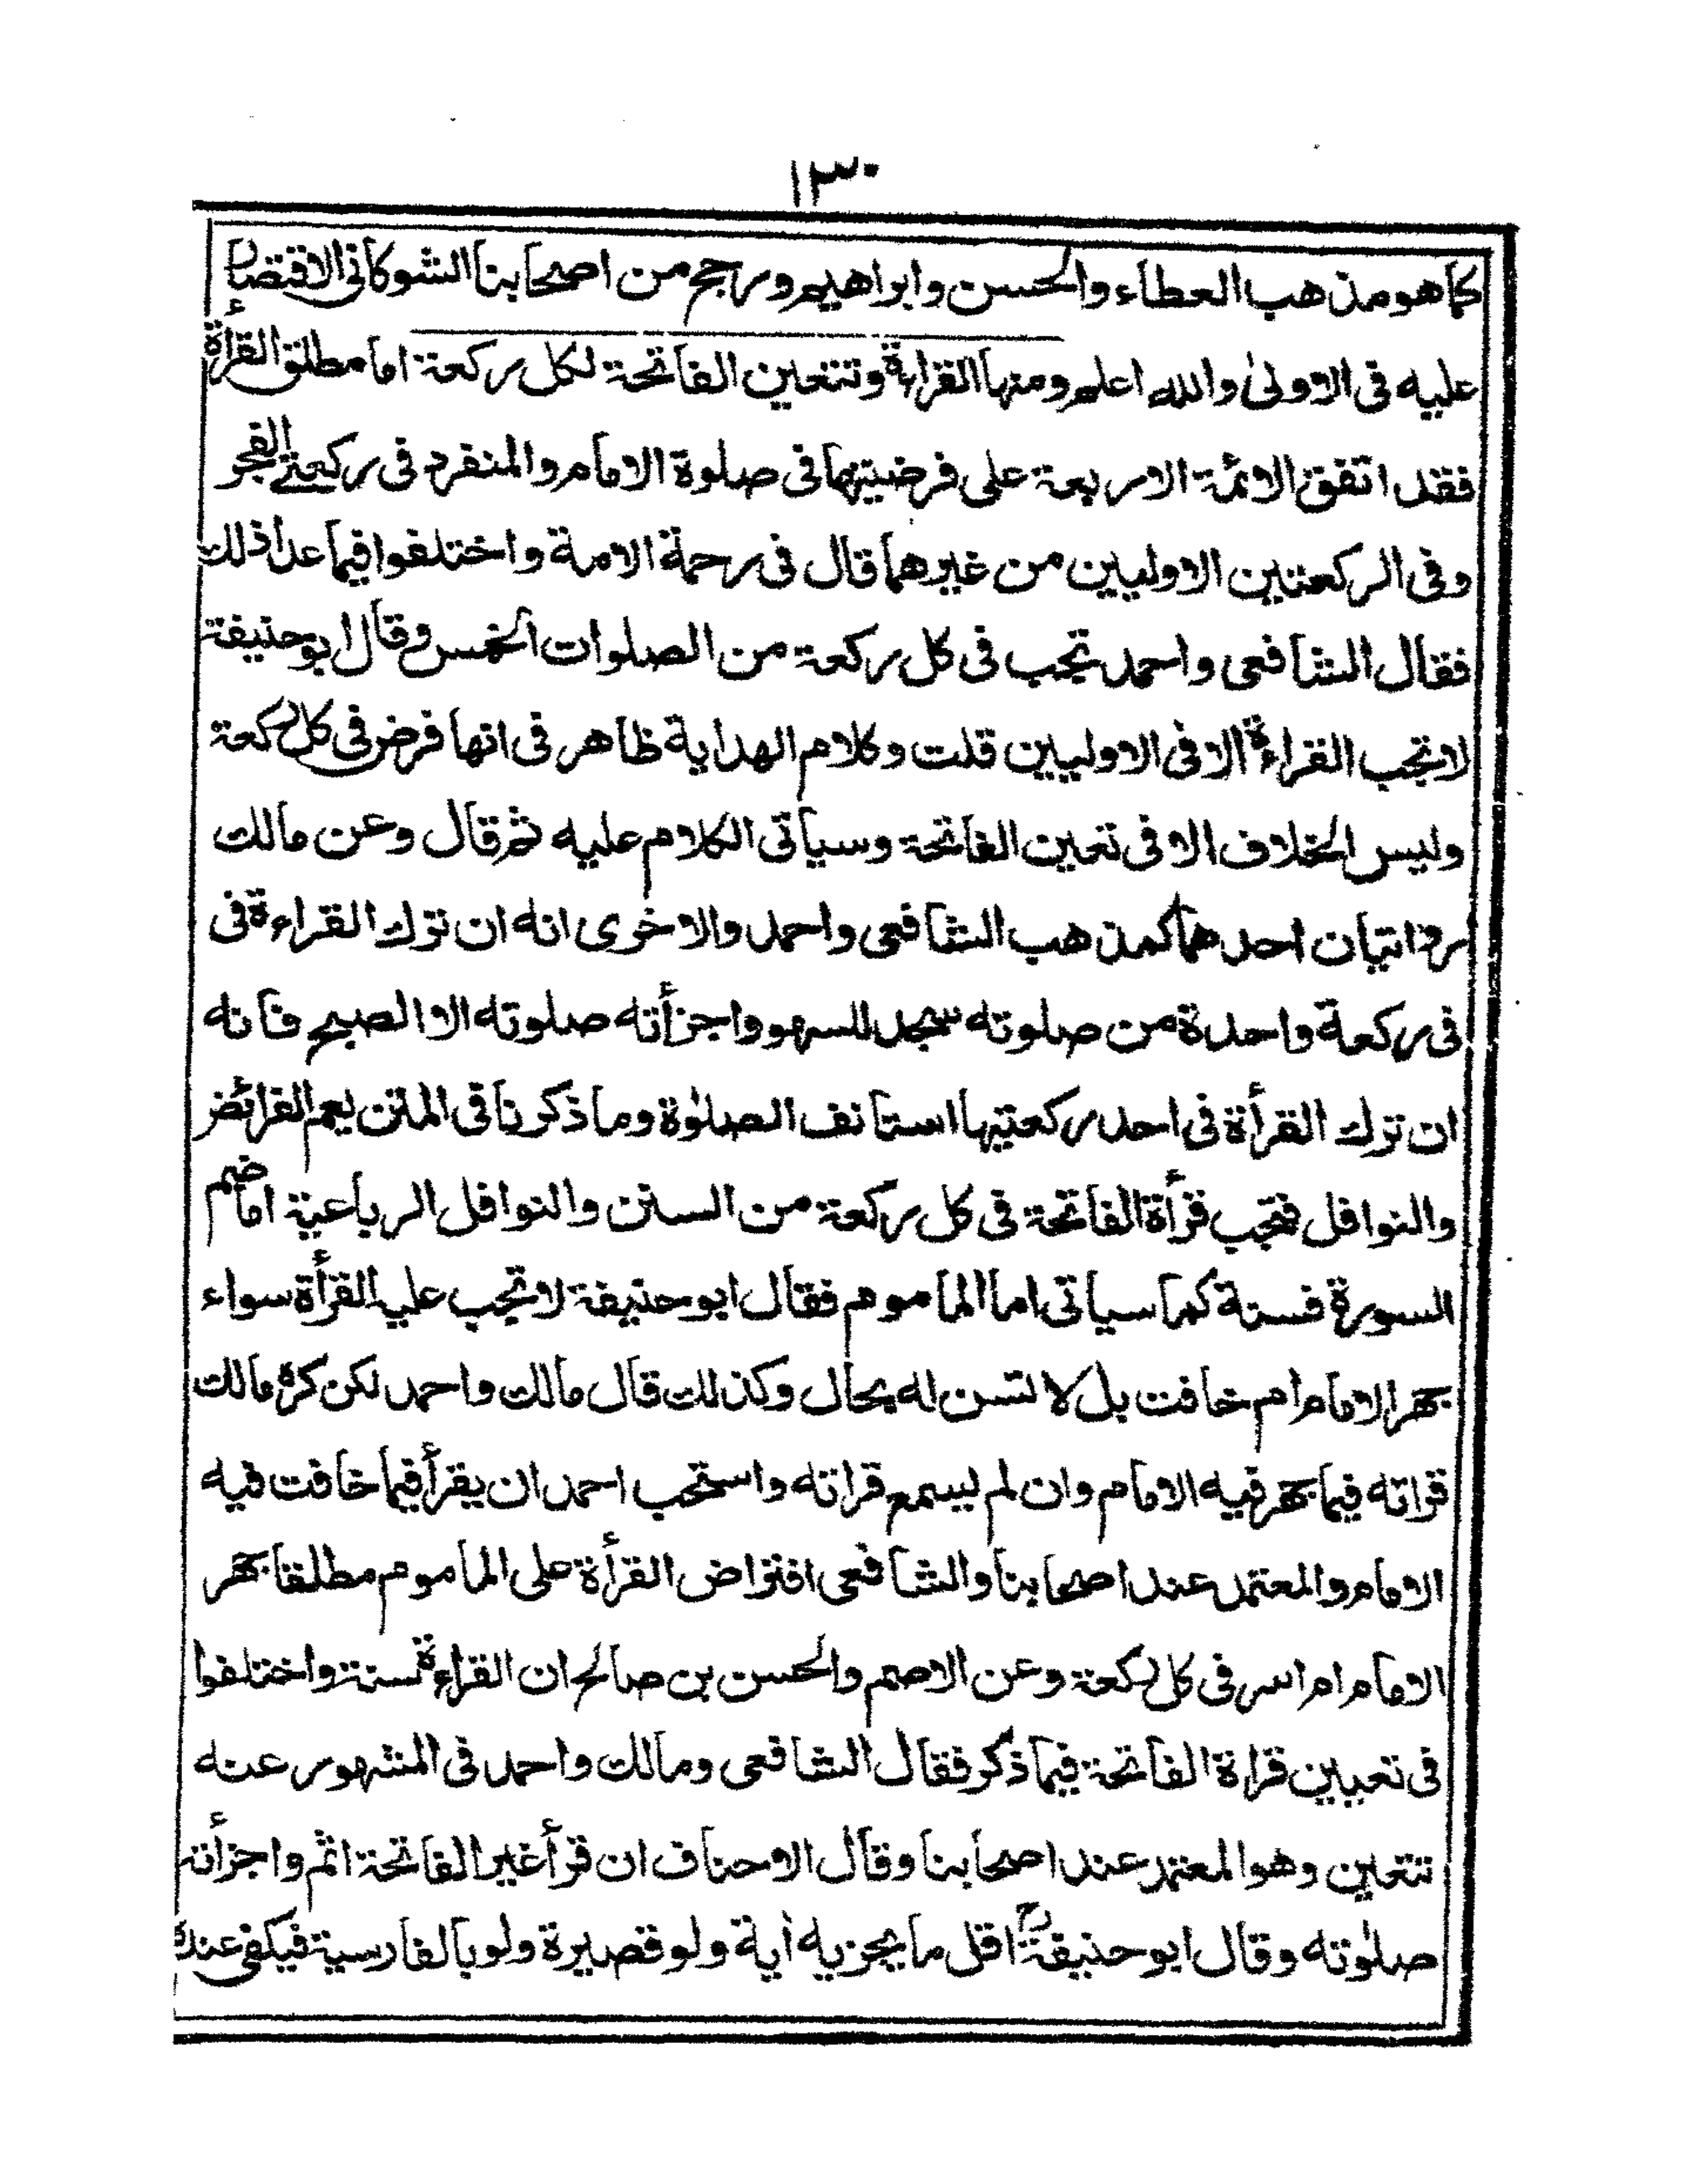 ١٣٠
كما هو مذهب العطاء والحسن وابراهيم ورجح من اصحابنا الشوكانى الاقتصار
عليه فى الاولىٰ والله اعلم ومنها القراءة وتتعين الفاتحة لكل ركعة اما مطلق القرأة
فقد اتفق الائمة الاربعة على فرضيتها فى صلوة الامام والمنفرد فى ركعتے الفجر
وفى الركعتين الاوليين من غيرهما قال فى رحمة الامة واختلفوا فيما عدا ذلك
فقال الشافعى واحمد تجب فى كل ركعة من الصلوات الخمس وقال ابو حنيفة
لا تجب القراءة الا فى الاوليين قلت وكلام الهداية ظاهر فى انها فرض فى كل ركعة
وليس الخلاف الا فى تعين الفاتحة وسياتى الكلام عليه ثم قال وعن مالك
روايتان احدهما كمذهب الشافعى واحمد والاخرى انه ان ترك القراءة فى
فى ركعة واحدة من صلوته سجد للسهو واجزأته صلوته الا الصبح فانه
ان ترك القرأة فى احد ركعتيها استانف الصلوٰة وما ذكرنا فى المتن يعم الفرائض
والنوافل فتجب قرأة الفاتحة فى كل ركعة من السنن والنوافل الرباعية اما ضم
السورة فسنة كما سياتى اما الماموم فقال ابو حنيفة لا تجب عليه القرأة سواء
جهر الامام ام خافت بل لا تسن له بحال وكذلك قال مالك واحمد لكن كره مالك
قراته فيما جهر فيه الامام وان لم يسمع قراته واستحب احمد ان يقرأ فيما خافت فيه
الامام والمعتمد عند اصحابنا والشافعى افتراض القرأة على الماموم مطلقا جهر
الامام ام اسر فى كل ركعة وعن الاصم والحسن بن صالح ان القراءة سنة واختلفوا
فى تعيين قراءة الفاتحة فيما ذكر فقال الشافعى ومالك واحمد فى المشهور عنه
تتعين وهو المعتمد عند اصحابنا وقال الاحناف ان قرأ غير الفاتحة اثم واجزأته
صلوٰته وقال ابو حنيفة رح اقل ما يجزيه اٰية ولو قصيرة ولو بالفارسية فيكفى عنده